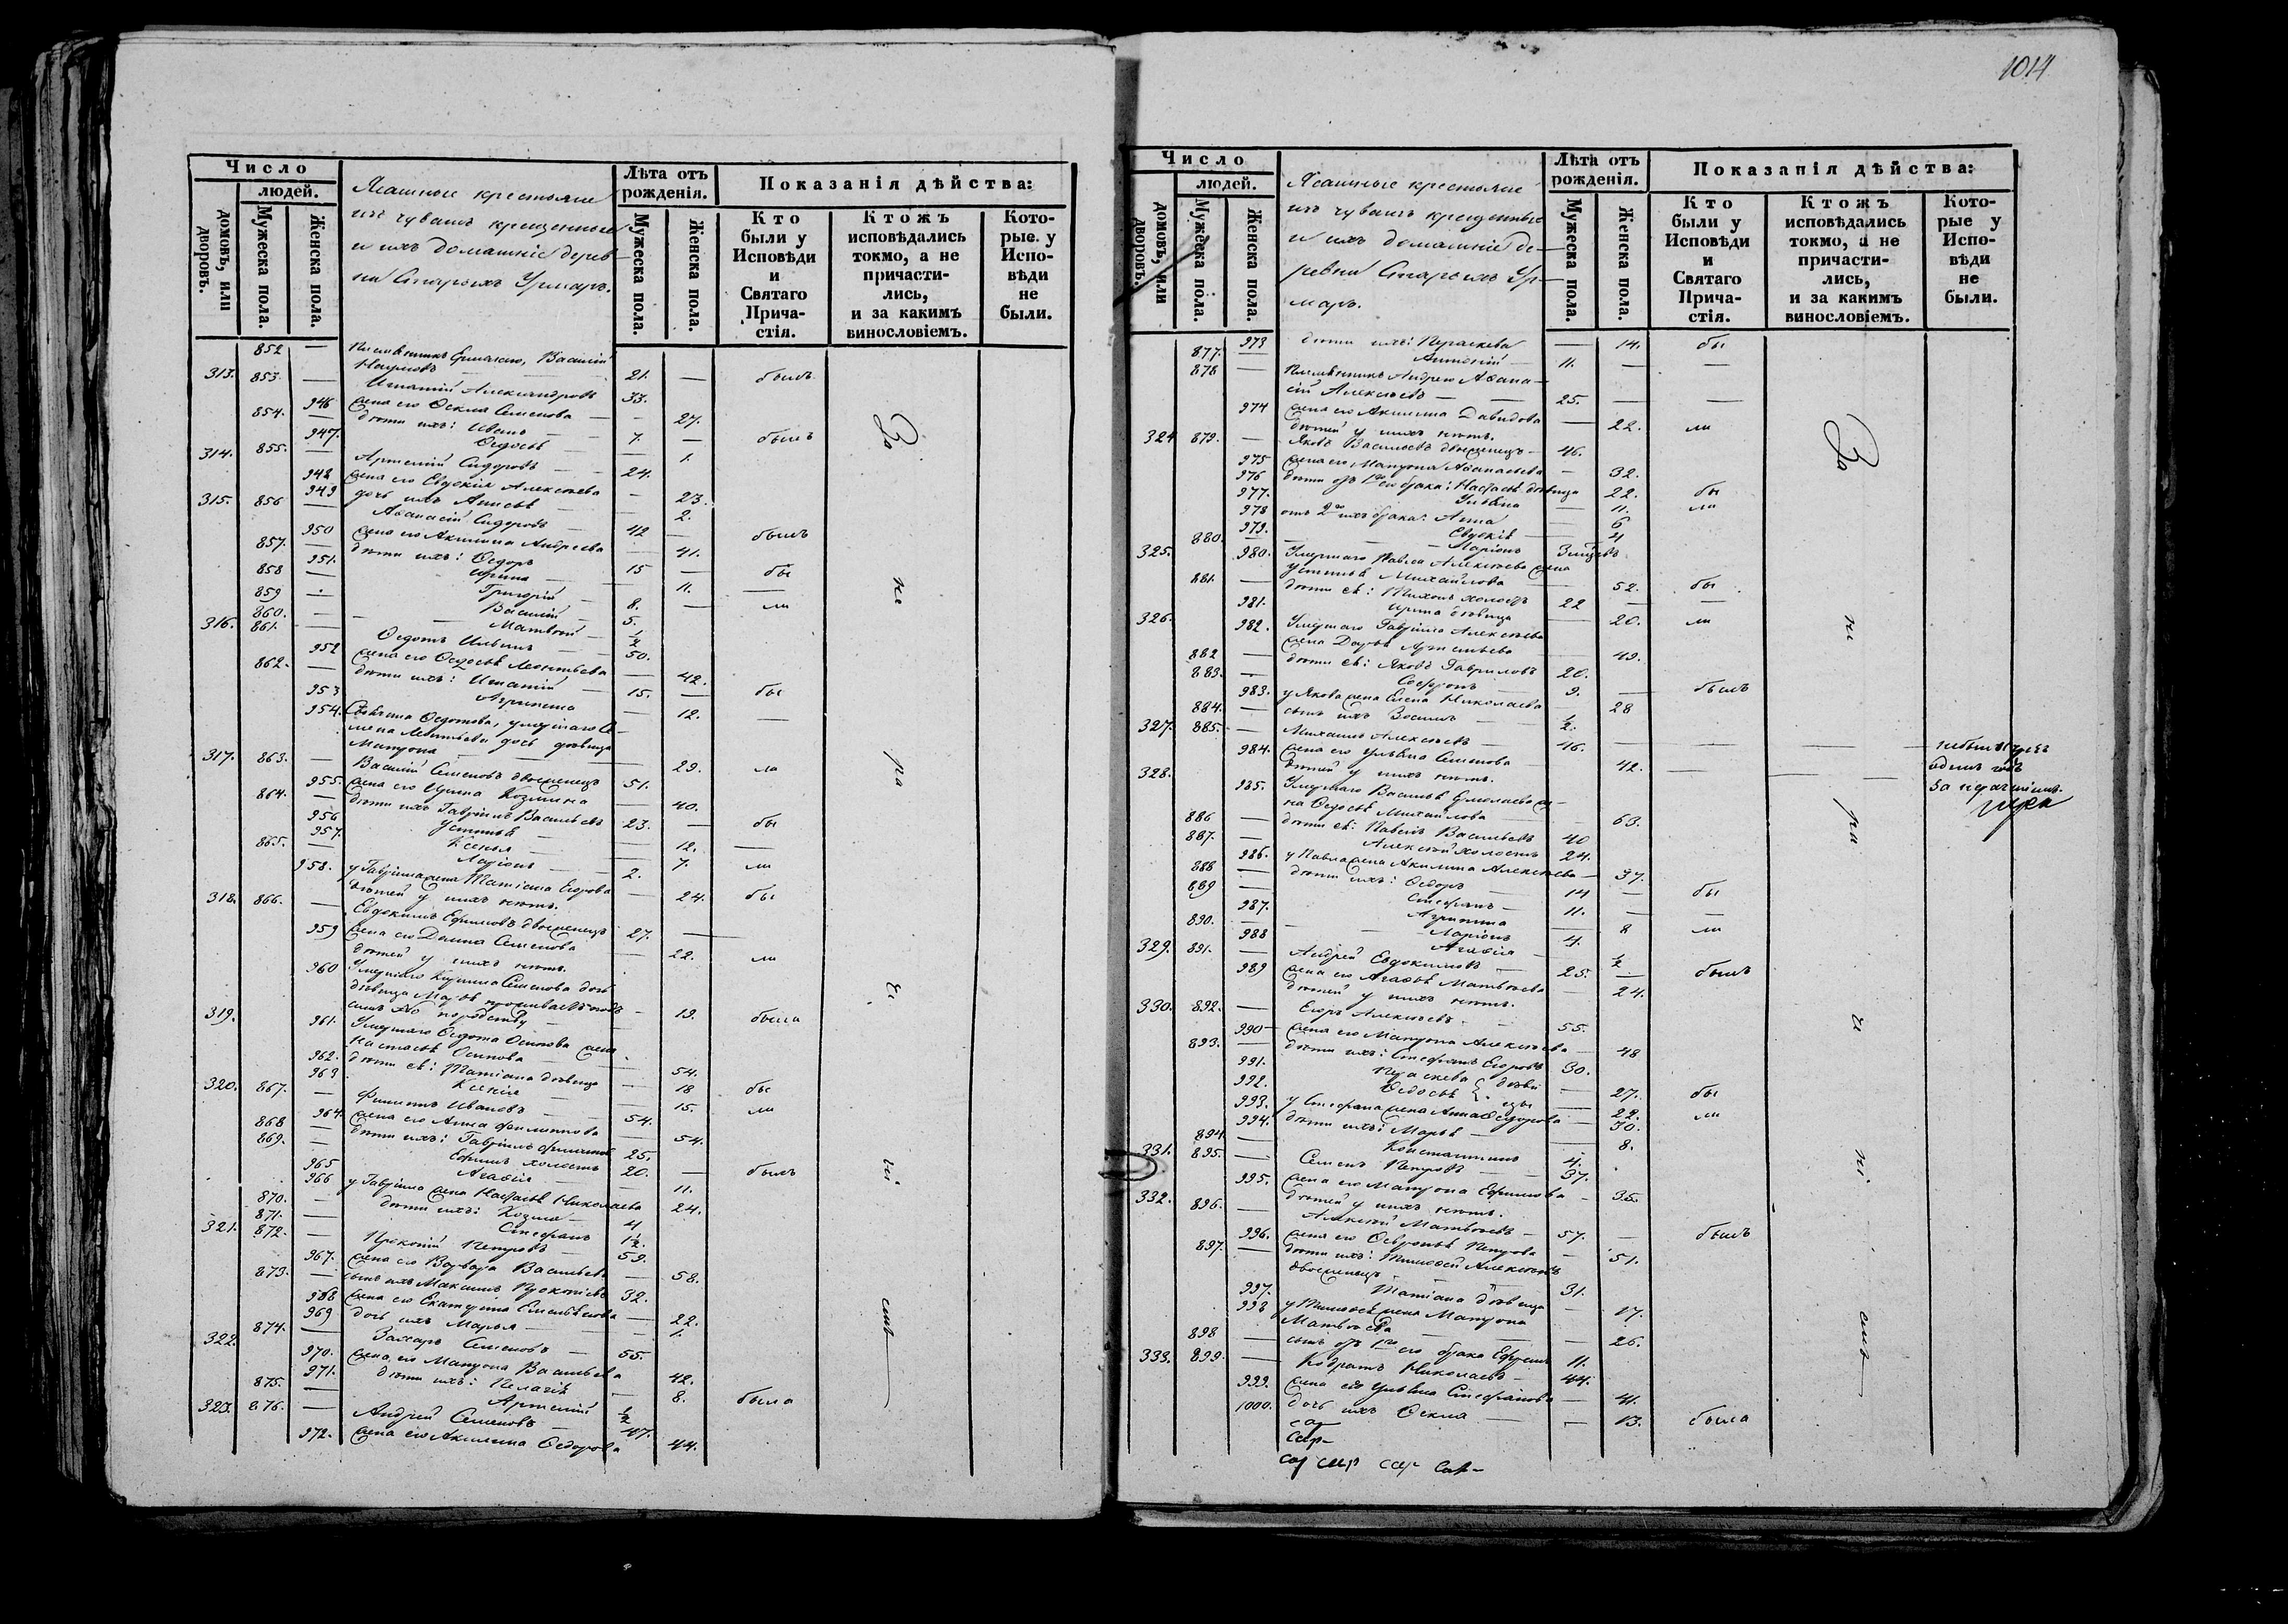 1014
Число
людей.
домовъ, или дворовъ.
Мужеска пола.
Женска пола.
Ясашные крестьяне
изъ чувашъ крещенные
и ихъ домашніе дерев-
ни Старыхъ Урмаръ.
Лѣта отъ рожденія.
Мужеска пола.
Женска пола.
Показанія дѣйства:
Кто были у Исповѣди и Святаго Прича-стія.
Ктожъ исповѣдались токмо, а не причасти-лись, и за какимъ винословіемъ.
Кото-рые у Испо-вѣди не были.
852 — Племянникъ Василій
Наумовъ — 21. — былъ
313. 853. — Игнатій Александровъ 33.
946 жена его Ѳекла Семенова — 27.
854. — дѣти ихъ: Иванъ 7. — былъ
947. Ѳедосья — 1.
314. 855. — Артемій Сидоровъ 24.
948 жена его Евдокія Алексѣева — 23.
949 дочь ихъ Анисья — 2.
315. 856 — Аѳанасій Сидоровъ 42 былъ
950 жена его Акилина Андреева — 41.
857. — дѣти ихъ: Ѳедоръ 15 — бы
951. Ирина — 11. —
858 — Григорій 8. — ли
859 — Василій 5.
860. — Матвей ½
316. 861. — Ѳедотъ Ильинъ 50.
952 жена его Ѳедосья Леонтьева — 42.
862. — дѣти ихъ: Игнатій 15. — бы
953 Агрипина — 12. —
954. Ѳедотова, умершаго Се-
мена Леонтьева дочь дѣвица
Матрона — 29. ла
317. 863. — Василій Семеновъ двоеженецъ 51.
955. жена его Ирина Козмина — 40.
864. — дѣти ихъ Гавріилъ Васильевъ 23. — бы
956 Устинья — 12. —
957. Ксенья — 7. ли
865. — Ларіонъ 2.
958. у Гавріила жена Татіана Егорова — 24. бы
дѣтей у нихъ нѣтъ.
318. 866. — Евдокимъ Ефимовъ двоеженецъ 27. —
959 жена его Домна Семенова — 22. ли
дѣтей у нихъ нѣтъ.
960 Умершаго Семенова дочь
дѣвица Марья проживаетъ
по сродству — 19. была
319. 961. Умершаго Ѳедота Осипова жена
Настасья Осипова — 54.
962. дѣти ея: Татіана дѣвица — 18 бы
963 Ксенія — 15. ли
320. 867. — Филиппъ Ивановъ 54.
964. жена его Анна Филиппова — 54.
868 — дѣти ихъ: Гавріилъ Филиповъ 25.
869. — Ефимъ холостъ 20. — былъ
965 Агафія — 11.
966 у Гавріила жена Настасья Николаева 24.
870. — дѣти ихъ: Козма 4
871. — Стефанъ 1½.
321. 872. — Прокопій Петровъ 59.
967. жена его Варвара Васильева — 58.
873. — сынъ ихъ Максимъ Прокопіевъ 32.
968 жена его Екатерина Емельянова — 22.
969 дочь ихъ Марья — 1.
322. 874. — Захаръ Семеновъ 55.
970. жена его Матрона Васильева 42.
971. дѣти ихъ: Пелагія — 8. была
875. — Артемій ½
323. 876. — Андрей Семеновъ 47.
972. жена его Акилина Ѳедорова 44.
За не ра че ні емъ
Число
людей.
домовъ, или дворовъ.
Мужеска пола.
Женска пола.
Ясашные крестьяне
изъ чувашъ крещенные
и ихъ домашніе де-
ревни Старыхъ Ур-
маръ.
Лѣта отъ рожденія.
Мужеска пола.
Женска пола.
Показанія дѣйства:
Кто были у Исповѣди и Святаго Прича-стія.
Ктожъ исповѣдались токмо, а не причасти-лись, и за какимъ винословіемъ.
Кото-рые у Испо-вѣди не были.
973 дѣти ихъ: Параскева — 14. бы
877. — Антоній 11. — —
878 — Племянникъ Андрею Аѳана-
сій Алексѣевъ 25. — —
974 жена его Акилина Давидова — 22. ли
дѣтей у нихъ нѣтъ.
324 879. — Яковъ Васильевъ двоеженецъ 46.
975 жена его Матрона Аѳанасьева — 32.
976 дѣти отъ 1го его брака: Настасья дѣвица 22. бы
977. Ульяна — 11. ли
978 отъ 2го ихъ брака: Анна 6
979. Евдокія 4
880. — Ларіонъ
325. 980. Умершаго Павла Алексѣева жена
Устинья Михайлова — 52. бы
881. — дѣти ея: Тихонъ холостъ 22 —
981. Ирина дѣвица — 20. ли
326. 982. Умершаго Гавріила Алексѣева
жена Дарья Артемьева — 49.
882 — дѣти ея: Яковъ Гавриловъ 20.
883. — Софронъ 9. — былъ
983. у Якова жена Елена Николаева — 28
884. — сынъ ихъ ½.
327. 885. — Михаилъ Алексѣевъ 46. — — — небылъ
984. жена его Ульяна Семенова — 42. — — одинъ годъ
дѣтей у нихъ нѣтъ.
328. 985. Умершаго Василья Ермолаева же-
на Ѳедосья Михайлова — 63.
за нерачѣніемъ.
886 — дѣти ея: Павелъ Васильевъ 40
887. — Алексѣй холостъ 24.
986. у Павла жена Акилина Алексѣева — 37.
888 — дѣти ихъ: Ѳедоръ 14 — бы
889 — Стефанъ 11. — —
987. Агрипина — 8 ли
890. — Ларіонъ 4.
988 Агафія — ½
329. 891. — Андрей Евдокимовъ 25. — былъ
989 жена его Агафья Матвѣева — 24.
дѣтей у нихъ нѣтъ.
330. 892. — Егоръ Алексѣевъ 55.
990 жена его Матрона Алексѣева — 48
893. — дѣти ихъ: Стефанъ Егоровъ 30.
991. Параскева — 27. бы
992. Ѳедосья дѣвицы — 22. ли
993. у Стефана жена Анна Ѳедорова — 30.
994. дѣти ихъ: Марья — 8.
894. — Константинъ 4.
331. 895. — Семенъ Петровъ 37.
995. жена его Матрона Ефимова — 35.
дѣтей у нихъ нѣтъ.
332. 896. — Алексѣй Матвѣевъ 57. — былъ
996. жена его Ѳевронья Петрова — 51.
897. — дѣти ихъ: Тимоѳей Алексѣевъ
двоеженецъ 31.
997. Татіана дѣвица — 17.
998 у Тимоѳея жена Матрона
Матвѣева — 26.
898 — сынъ отъ 1го его брака Ефремъ 11.
333. 899. — Кодратъ Николаевъ 44.
999. жена его Ульяна Стефанова — 41.
1000. дочь ихъ Ѳекла — 13. была
За не ра че ні емъ